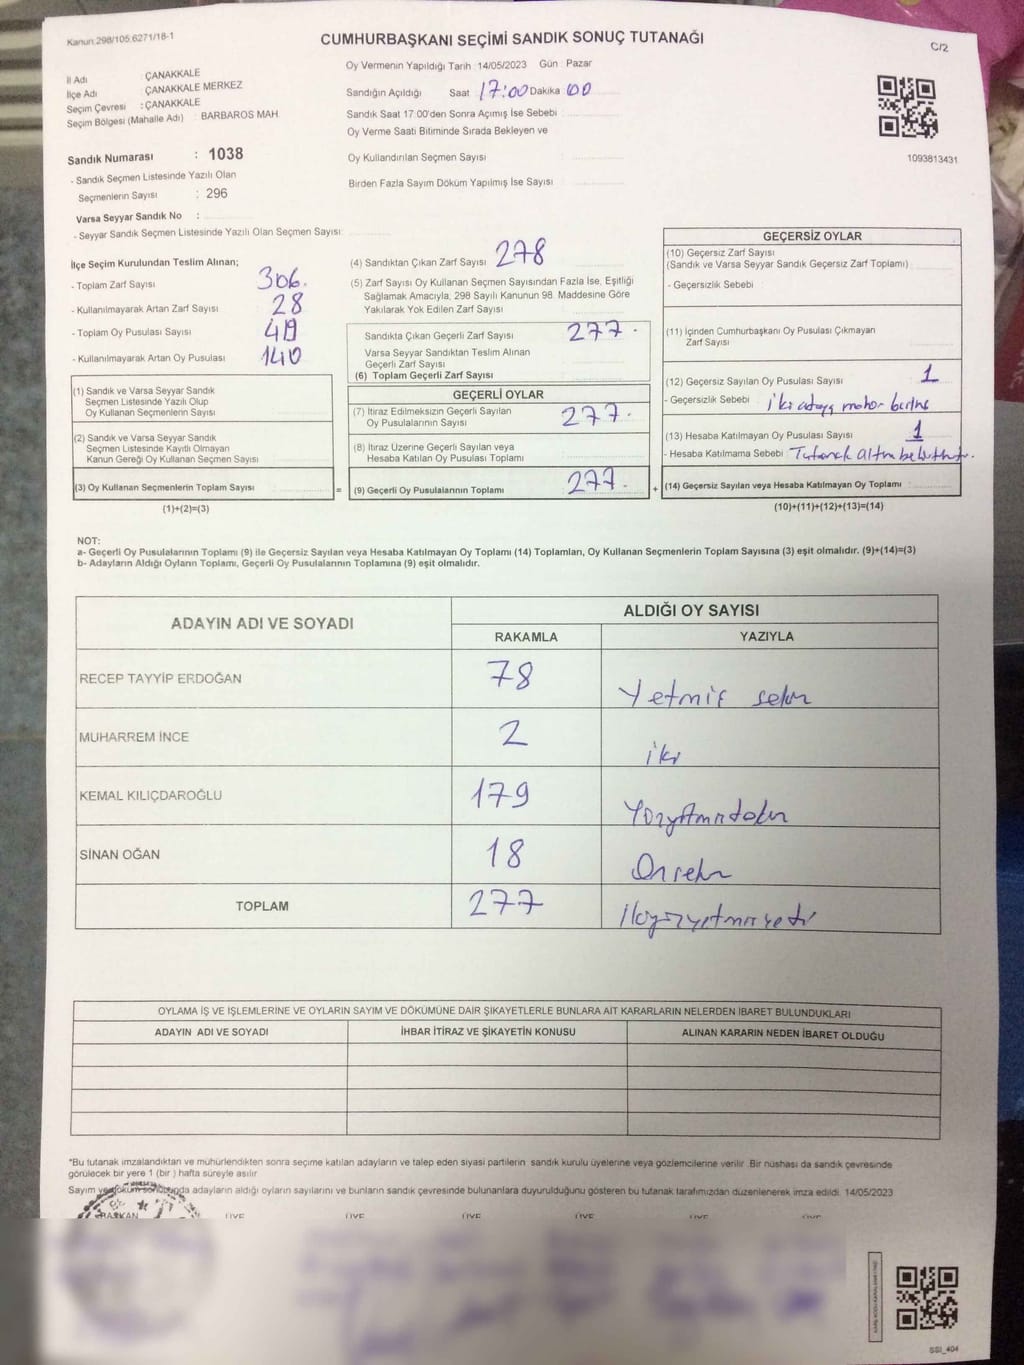 Kanun:298/105,6271/18-1
CUMHURBAŞKANI SEÇİMİ SANDIK SONUÇ TUTANAĞI
C/2
İl Adı : ÇANAKKALE
İlçe Adı : ÇANAKKALE MERKEZ
Seçim Çevresi : ÇANAKKALE
Seçim Bölgesi (Mahalle Adı) : BARBAROS MAH.
Sandık Numarası : 1038
- Sandık Seçmen Listesinde Yazılı Olan
Seçmenlerin Sayısı : 296
Varsa Seyyar Sandık No :
- Seyyar Sandık Seçmen Listesinde Yazılı Olan Seçmen Sayısı:
Oy Vermenin Yapıldığı Tarih : 14/05/2023 Gün : Pazar
Sandığın Açıldığı Saat 17:00 Dakika 00
Sandık Saat 17:00'den Sonra Açımış İse Sebebi
Oy Verme Saati Bitiminde Sırada Bekleyen ve
Oy Kullandırılan Seçmen Sayısı
Birden Fazla Sayım Döküm Yapılmış İse Sayısı
1093813431
İlçe Seçim Kurulundan Teslim Alınan;
- Toplam Zarf Sayısı 306.
- Kullanılmayarak Artan Zarf Sayısı 28
- Toplam Oy Pusulası Sayısı 419
- Kullanılmayarak Artan Oy Pusulası 140
(1) Sandık ve Varsa Seyyar Sandık
Seçmen Listesinde Yazılı Olup
Oy Kullanan Seçmenlerin Sayısı
(2) Sandık ve Varsa Seyyar Sandık
Seçmen Listesinde Kayıtlı Olmayan
Kanun Gereği Oy Kullanan Seçmen Sayısı
(3) Oy Kullanan Seçmenlerin Toplam Sayısı
(1)+(2)=(3)
=
(4) Sandıktan Çıkan Zarf Sayısı 278
(5) Zarf Sayısı Oy Kullanan Seçmen Sayısından Fazla İse, Eşitliği
Sağlamak Amacıyla, 298 Sayılı Kanunun 98. Maddesine Göre
Yakılarak Yok Edilen Zarf Sayısı
Sandıkta Çıkan Geçerli Zarf Sayısı 277.
Varsa Seyyar Sandıktan Teslim Alınan
Geçerli Zarf Sayısı
(6) Toplam Geçerli Zarf Sayısı
GEÇERLİ OYLAR
(7) İtiraz Edilmeksizin Geçerli Sayılan
Oy Pusulalarının Sayısı 277.
(8) İtiraz Üzerine Geçerli Sayılan veya
Hesaba Katılan Oy Pusulası Toplamı
(9) Geçerli Oy Pusulalarının Toplamı 277.
+
GEÇERSİZ OYLAR
(10) Geçersiz Zarf Sayısı
(Sandık ve Varsa Seyyar Sandık Geçersiz Zarf Toplamı)
- Geçersizlik Sebebi
(11) İçinden Cumhurbaşkanı Oy Pusulası Çıkmayan
Zarf Sayısı
(12) Geçersiz Sayılan Oy Pusulası Sayısı 1
- Geçersizlik Sebebi iki adaya
(13) Hesaba Katılmayan Oy Pusulası Sayısı 1
- Hesaba Katılmama Sebebi Tutanak
(14) Geçersiz Sayılan veya Hesaba Katılmayan Oy Toplamı
(10)+(11)+(12)+(13)=(14)
NOT:
a- Geçerli Oy Pusulalarının Toplamı (9) ile Geçersiz Sayılan veya Hesaba Katılmayan Oy Toplamı (14) Toplamları, Oy Kullanan Seçmenlerin Toplam Sayısına (3) eşit olmalıdır. (9)+(14)=(3)
b- Adayların Aldığı Oyların Toplamı, Geçerli Oy Pusulalarının Toplamına (9) eşit olmalıdır.
ADAYIN ADI VE SOYADI
ALDIĞI OY SAYISI
RAKAMLA YAZIYLA
RECEP TAYYİP ERDOĞAN 78 Yetmiş sekiz
MUHARREM İNCE 2 iki
KEMAL KILIÇDAROĞLU 179
SİNAN OĞAN 18 Onsekiz
TOPLAM 277
OYLAMA İŞ VE İŞLEMLERİNE VE OYLARIN SAYIM VE DÖKÜMÜNE DAİR ŞİKAYETLERLE BUNLARA AİT KARARLARIN NELERDEN İBARET BULUNDUKLARI
ADAYIN ADI VE SOYADI İHBAR İTİRAZ VE ŞİKAYETİN KONUSU ALINAN KARARIN NEDEN İBARET OLDUĞU
*Bu tutanak imzalandıktan ve mühürlendikten sonra seçime katılan adayların ve talep eden siyasi partilerin sandık kurulu üyelerine veya gözlemcilerine verilir. Bir nüshası da sandık çevresinde
görülecek bir yere 1 (bir ) hafta süreyle asılır.
Sayım ve döküm sonucunda adayların aldığı oyların sayılarını ve bunların sandık çevresinde bulunanlara duyurulduğunu gösteren bu tutanak tarafımızdan düzenlenerek imza edildi. 14/05/2023
BAŞKAN ÜYE ÜYE ÜYE ÜYE ÜYE ÜYE
SSI_404